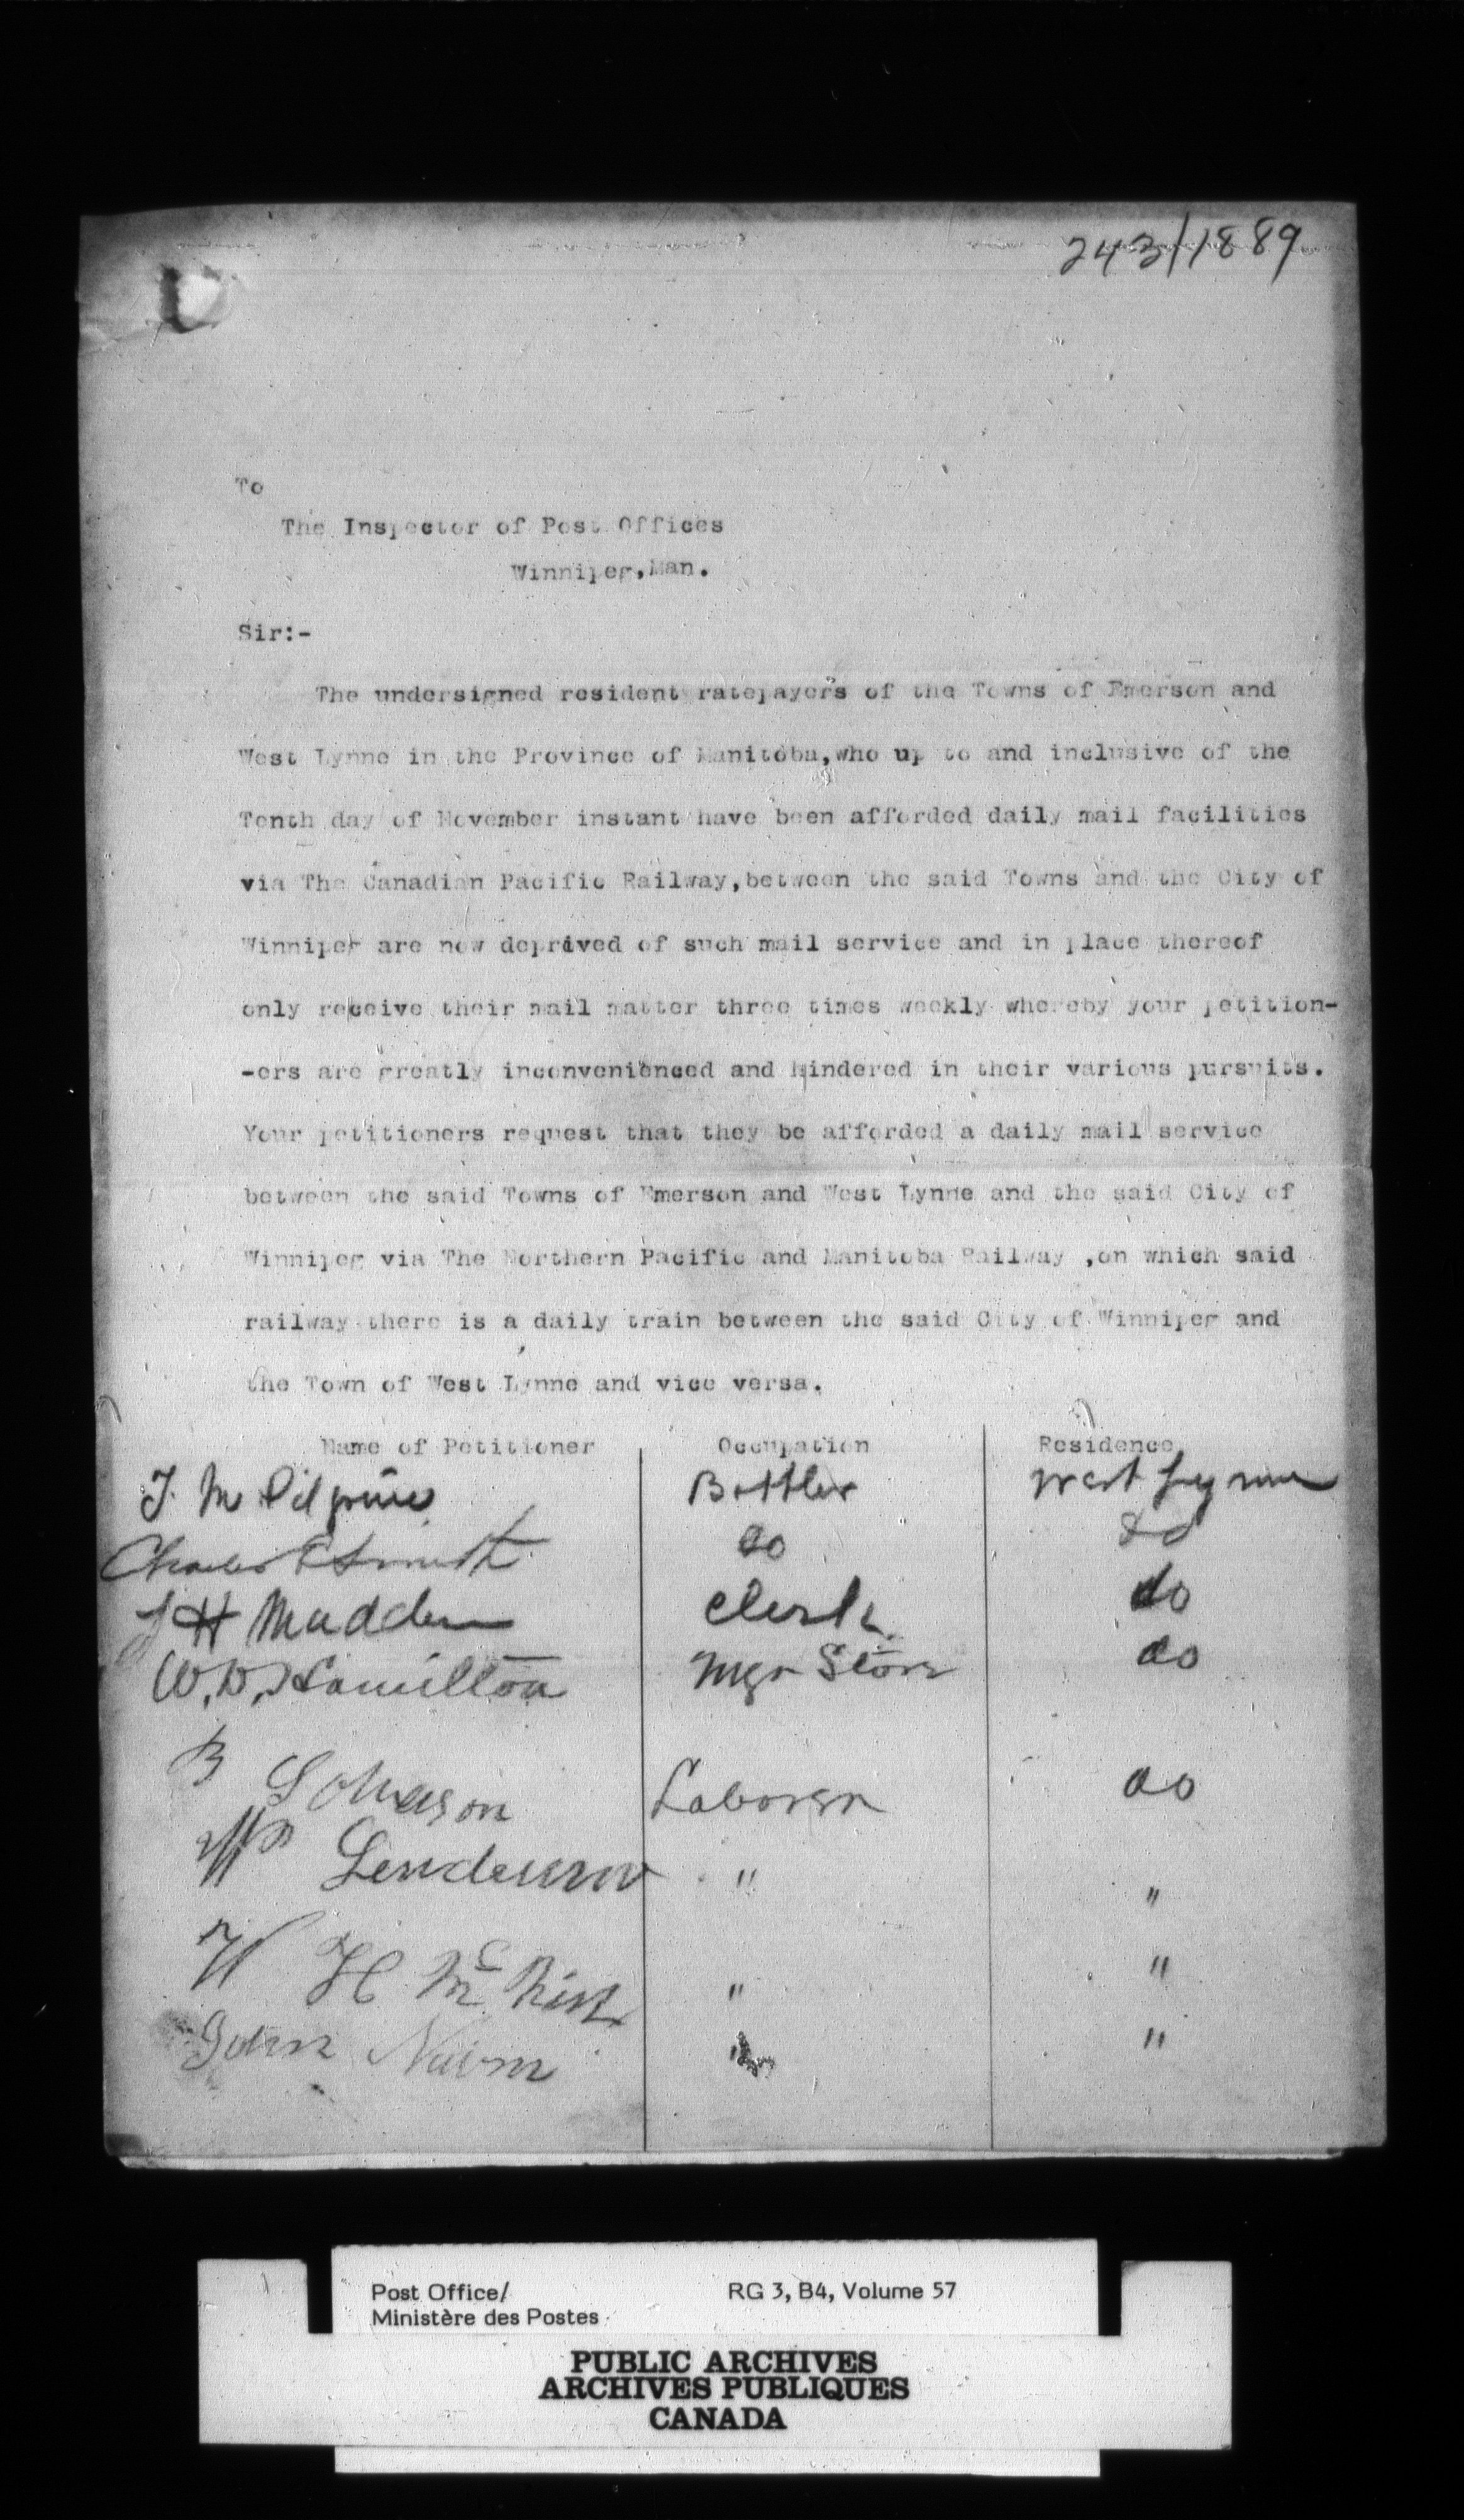 243/1889
To
The Inspector of Post Offices
Winnipeg,Man.
Sir:-
The undersigned resident ratepayers of the Towns of Emerson and
West Lynne in the Province of Manitoba,who up to and inclusive of the
Tenth day of November instant have been afforded daily mail facilities
via The Canadian Pacific Railway,between the said Towns and the City of
Winnipeg are now deprived of such mail service and in place thereof
only receive their mail matter three times weekly whereby your petition-
-ers are greatly inconvenienced and hindered in their various pursuits.
Your petitioners request that they be afforded a daily mail service
between the said Towns of Emerson and West Lynne and the said City of
Winnipeg via The Northern Pacific and Manitoba Railway ,on which said
railway there is a daily train between the said City of Winnipeg and
the Town of West Lynne and vice versa.
Name of Petitioner Occupation Residence
J. M. Pilgrim Bottler West Lynne
Charles E Smith do do
J H Madden Clerk do
W. D. Hamilton Mgr Store do
B Laborer do
" "
W H Mc " "
John " "
Post Office/ RG 3, B4, Volume 57
Ministère des Postes
PUBLIC ARCHIVES
ARCHIVES PUBLIQUES
CANADA